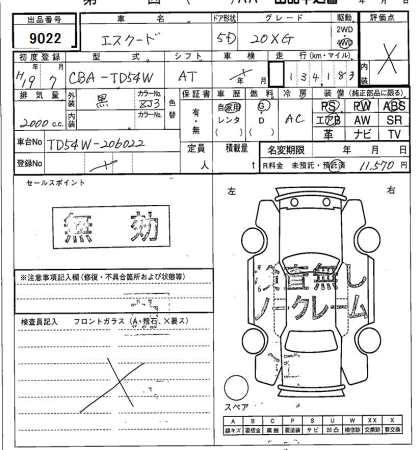 出品番号 車名 ドア形状 グレード 駆動 評価点
9022 エスクード 5D 20XG 2WD 4WD
初度登録 型式 シフト 車検 走行(km・マイル) 内装
H19年7月 CBA-TD54W AT 年 月 134183
排気量 外装 黒 カラーNo. ZJ3 色替 保証書 車歴 燃料 冷房 装備(純正部品に限る)
2000c.c. 内装 カラーNo. 有・無 自家用 レンタ G D AC PS PW ABS
エアB AW SR
革 ナビ TV
車台No TD54W-206022 定員 人 積載量 t 名変期限 年 月 日
登録No R料金 未預託・預託済 11,570円
セールスポイント
無効
左 右
※注意事項記入欄(修復・不具合箇所および状態等)
検査員記入 フロントガラス(A・飛石、X要ス)
査無し
ノークレーム
スペア
A B C P S U W XX X
線キズ 要板金 腐蝕 要塗装 サビ 凹凸 補修跡 交換跡 要交換